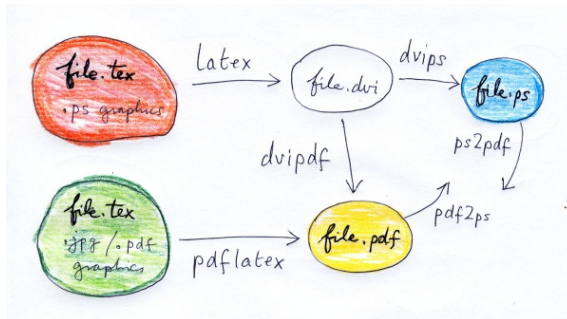 file.tex
.ps graphics
latex
file.dvi
dvips
file.ps
dvipdf
ps2pdf
file.tex
.jpg/.pdf
graphics
pdflatex
file.pdf
pdf2ps